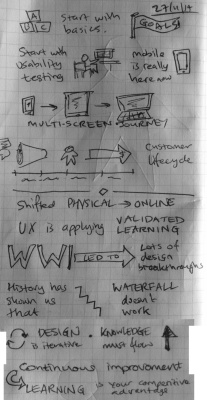 27/11/14
A
B C
start with basics.
GOALS!
Start with usability testing
mobile is really here now
MULTI-SCREEN JOURNEY
Customer Lifecycle
Shifted PHYSICAL → ONLINE
UX is applying VALIDATED LEARNING
WWI LED TO Lots of design breakthroughs
History has shown us that WATERFALL doesn't work
DESIGN is iterative
KNOWLEDGE must flow
Continuous improvement
LEARNING is your competitive advantage